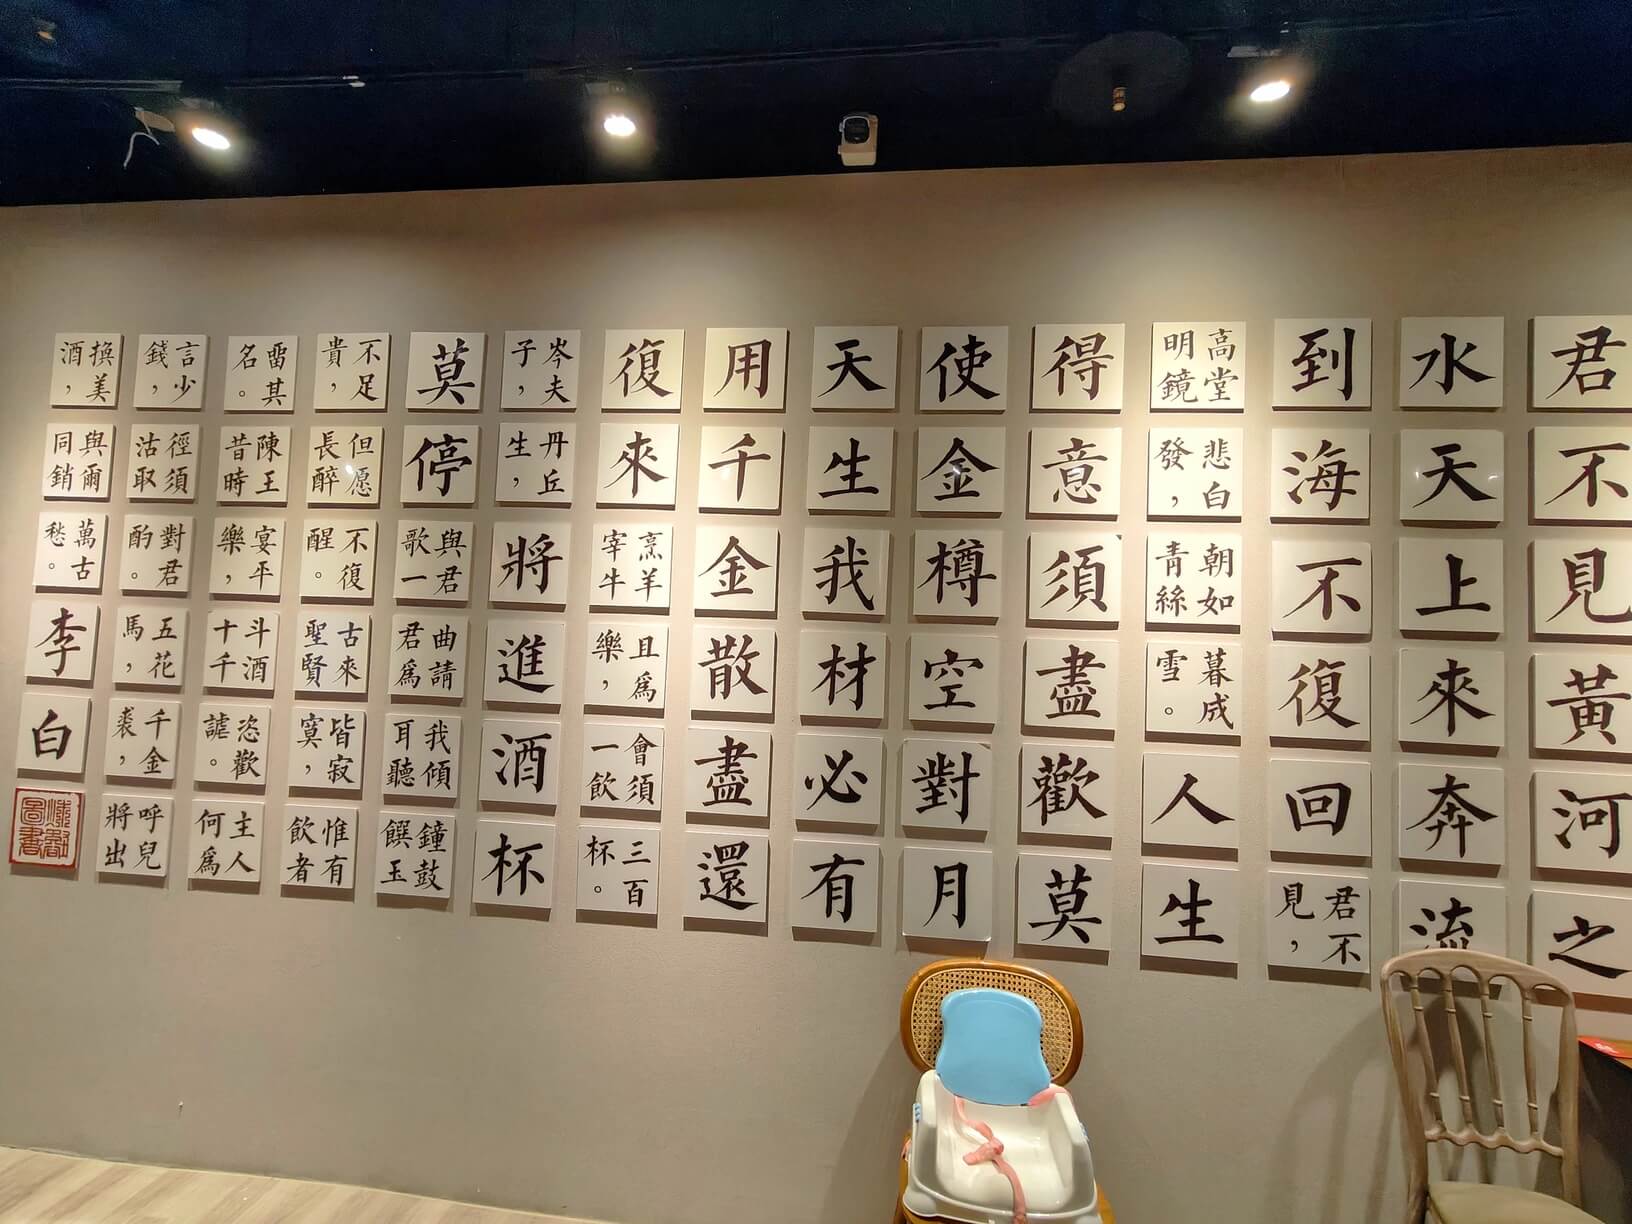 君不見黃河之
水天上來奔流
到海不復回君不見，
高堂明鏡悲白發，朝如青絲暮成雪。人生
得意須盡歡莫
使金樽空對月
天生我材必有
用千金散盡還
復來烹羊宰牛且爲樂，會須一飲三百杯。
岑夫子，丹丘生，將進酒杯
莫停與君歌一曲請君爲我傾耳聽鐘鼓饌玉
不足貴，但愿長醉不復醒。古來聖賢皆寂寞，惟有飲者
畱其名。陳王昔時宴平樂，斗酒十千恣歡謔。主人何爲
言少錢，徑須沽取對君酌。五花馬，千金裘，呼兒將出
換美酒，與爾同銷萬古愁。李白